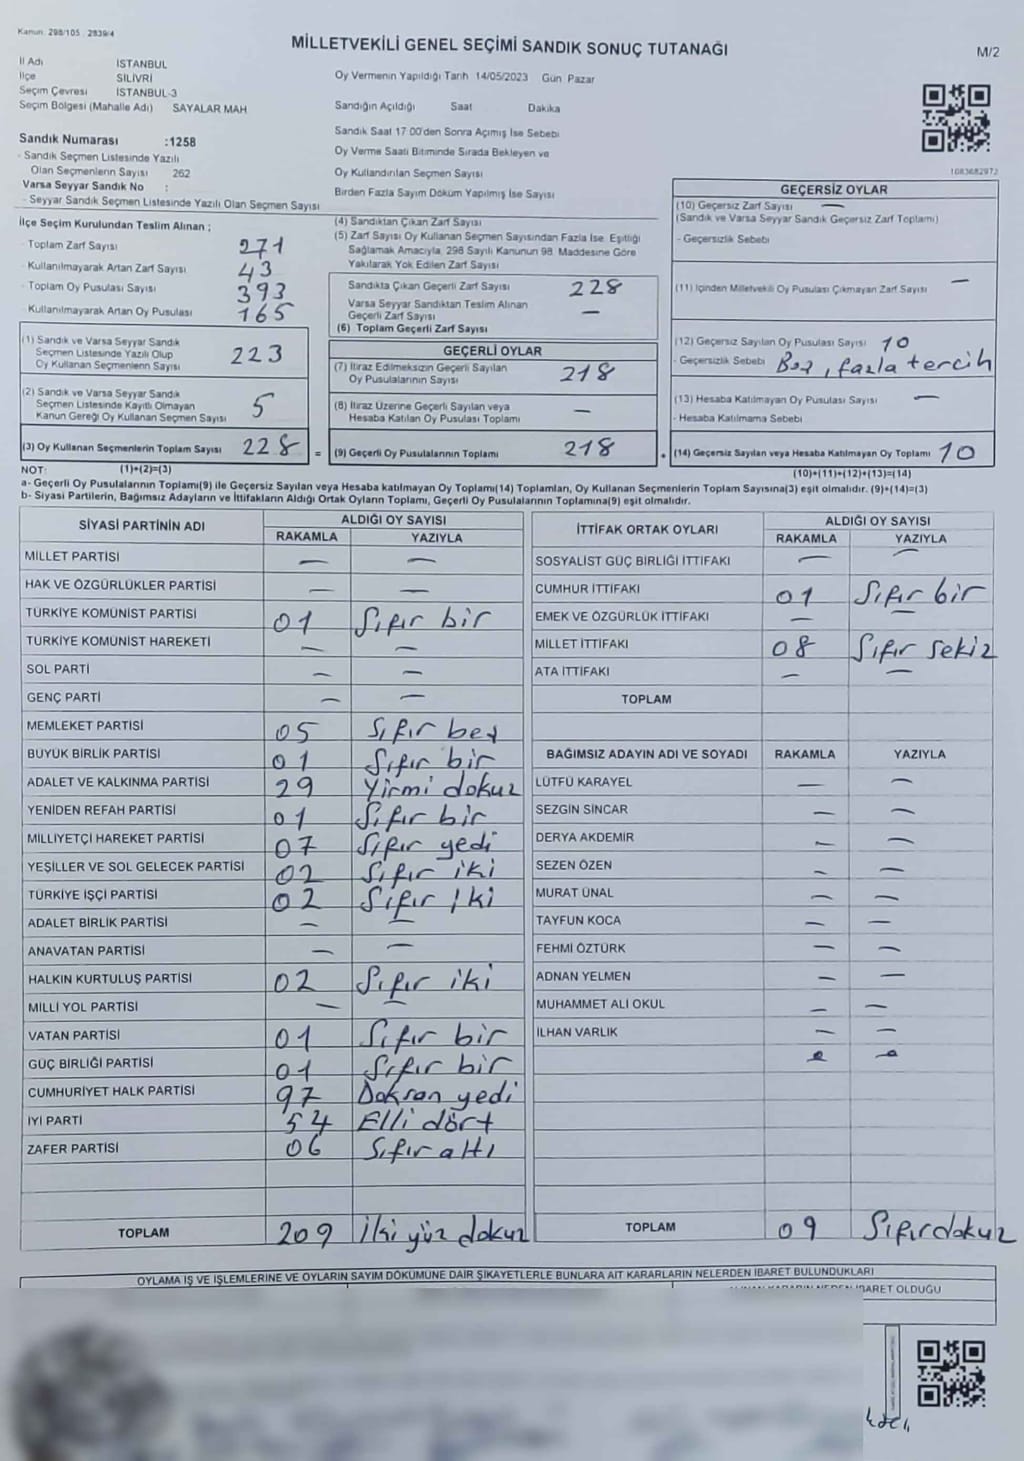 Kanun: 298/105 , 2839/4
MİLLETVEKİLİ GENEL SEÇİMİ SANDIK SONUÇ TUTANAĞI
M/2
İl Adı İSTANBUL
İlçe SİLİVRİ
Seçim Çevresi İSTANBUL-3
Seçim Bölgesi (Mahalle Adı) SAYALAR MAH
Oy Vermenin Yapıldığı Tarih 14/05/2023 Gün Pazar
Sandığın Açıldığı Saat Dakika
Sandık Saat 17:00'den Sonra Açımış İse Sebebi
Oy Verme Saati Bitiminde Sırada Bekleyen ve
Oy Kullandırılan Seçmen Sayısı
Birden Fazla Sayım Döküm Yapılmış İse Sayısı
Sandık Numarası :1258
- Sandık Seçmen Listesinde Yazılı
Olan Seçmenlerin Sayısı 262
Varsa Seyyar Sandık No :
- Seyyar Sandık Seçmen Listesinde Yazılı Olan Seçmen Sayısı
1083682972
İlçe Seçim Kurulundan Teslim Alınan ;
- Toplam Zarf Sayısı 271
- Kullanılmayarak Artan Zarf Sayısı 43
- Toplam Oy Pusulası Sayısı 393
- Kullanılmayarak Artan Oy Pusulası 165
(1) Sandık ve Varsa Seyyar Sandık
Seçmen Listesinde Yazılı Olup
Oy Kullanan Seçmenlerin Sayısı 223
(2) Sandık ve Varsa Seyyar Sandık
Seçmen Listesinde Kayıtlı Olmayan
Kanun Gereği Oy Kullanan Seçmen Sayısı 5
(3) Oy Kullanan Seçmenlerin Toplam Sayısı 228 =
(4) Sandıktan Çıkan Zarf Sayısı
(5) Zarf Sayısı Oy Kullanan Seçmen Sayısından Fazla İse, Eşitliği
Sağlamak Amacıyla, 298 Sayılı Kanunun 98. Maddesine Göre
Yakılarak Yok Edilen Zarf Sayısı
Sandıkta Çıkan Geçerli Zarf Sayısı 228
Varsa Seyyar Sandıktan Teslim Alınan
Geçerli Zarf Sayısı —
(6) Toplam Geçerli Zarf Sayısı
GEÇERLİ OYLAR
(7) İtiraz Edilmeksizin Geçerli Sayılan
Oy Pusulalarının Sayısı 218
(8) İtiraz Üzerine Geçerli Sayılan veya
Hesaba Katılan Oy Pusulası Toplamı —
(9) Geçerli Oy Pusulalarının Toplamı 218 +
GEÇERSİZ OYLAR
(10) Geçersiz Zarf Sayısı —
(Sandık ve Varsa Seyyar Sandık Geçersiz Zarf Toplamı)
- Geçersizlik Sebebi
(11) İçinden Milletvekili Oy Pusulası Çıkmayan Zarf Sayısı —
(12) Geçersiz Sayılan Oy Pusulası Sayısı 10
- Geçersizlik Sebebi Boş, fazla tercih
(13) Hesaba Katılmayan Oy Pusulası Sayısı —
- Hesaba Katılmama Sebebi
(14) Geçersiz Sayılan veya Hesaba Katılmayan Oy Toplamı 10
NOT: (1)+(2)=(3)
(10)+(11)+(12)+(13)=(14)
a- Geçerli Oy Pusulalarının Toplamı(9) ile Geçersiz Sayılan veya Hesaba katılmayan Oy Toplamı(14) Toplamları, Oy Kullanan Seçmenlerin Toplam Sayısına(3) eşit olmalıdır. (9)+(14)=(3)
b- Siyasi Partilerin, Bağımsız Adayların ve İttifakların Aldığı Ortak Oyların Toplamı, Geçerli Oy Pusulalarının Toplamına(9) eşit olmalıdır.
SİYASİ PARTİNİN ADI ALDIĞI OY SAYISI
RAKAMLA YAZIYLA
MİLLET PARTİSİ — —
HAK VE ÖZGÜRLÜKLER PARTİSİ — —
TÜRKİYE KOMÜNİST PARTİSİ 01 Sıfır bir
TÜRKİYE KOMÜNİST HAREKETİ — —
SOL PARTİ — —
GENÇ PARTİ — —
MEMLEKET PARTİSİ 05 Sıfır beş
BÜYÜK BİRLİK PARTİSİ 01 Sıfır bir
ADALET VE KALKINMA PARTİSİ 29 Yirmi dokuz
YENİDEN REFAH PARTİSİ 01 Sıfır bir
MİLLİYETÇİ HAREKET PARTİSİ 07 Sıfır yedi
YEŞİLLER VE SOL GELECEK PARTİSİ 02 Sıfır iki
TÜRKİYE İŞÇİ PARTİSİ 02 Sıfır iki
ADALET BİRLİK PARTİSİ — —
ANAVATAN PARTİSİ — —
HALKIN KURTULUŞ PARTİSİ 02 Sıfır iki
MİLLİ YOL PARTİSİ — —
VATAN PARTİSİ 01 Sıfır bir
GÜÇ BİRLİĞİ PARTİSİ 01 Sıfır bir
CUMHURİYET HALK PARTİSİ 97 Doksan yedi
İYİ PARTİ 54 Elli dört
ZAFER PARTİSİ 06 Sıfır altı
TOPLAM 209 İki yüz dokuz
İTTİFAK ORTAK OYLARI ALDIĞI OY SAYISI
RAKAMLA YAZIYLA
SOSYALİST GÜÇ BİRLİĞİ İTTİFAKI — —
CUMHUR İTTİFAKI 01 Sıfır bir
EMEK VE ÖZGÜRLÜK İTTİFAKI — —
MİLLET İTTİFAKI 08 Sıfır sekiz
ATA İTTİFAKI — —
TOPLAM
BAĞIMSIZ ADAYIN ADI VE SOYADI RAKAMLA YAZIYLA
LÜTFÜ KARAYEL — —
SEZGİN SİNCAR — —
DERYA AKDEMİR — —
SEZEN ÖZEN — —
MURAT ÜNAL — —
TAYFUN KOCA — —
FEHMİ ÖZTÜRK — —
ADNAN YELMEN — —
MUHAMMET ALİ OKUL — —
İLHAN VARLIK — —
TOPLAM 09 Sıfır dokuz
OYLAMA İŞ VE İŞLEMLERİNE VE OYLARIN SAYIM DÖKÜMÜNE DAİR ŞİKAYETLERLE BUNLARA AİT KARARLARIN NELERDEN İBARET BULUNDUKLARI
OLDUĞU